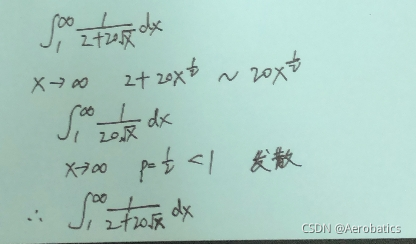 ∫₁^∞ 1/(2+20√x) dx
x→∞ 2+20x^½ ~ 20x^½
∫₁^∞ 1/(20√x) dx
x→∞ p=½ <1 发散
∴ ∫₁^∞ 1/(2+20√x) dx
CSDN @Aerobatics